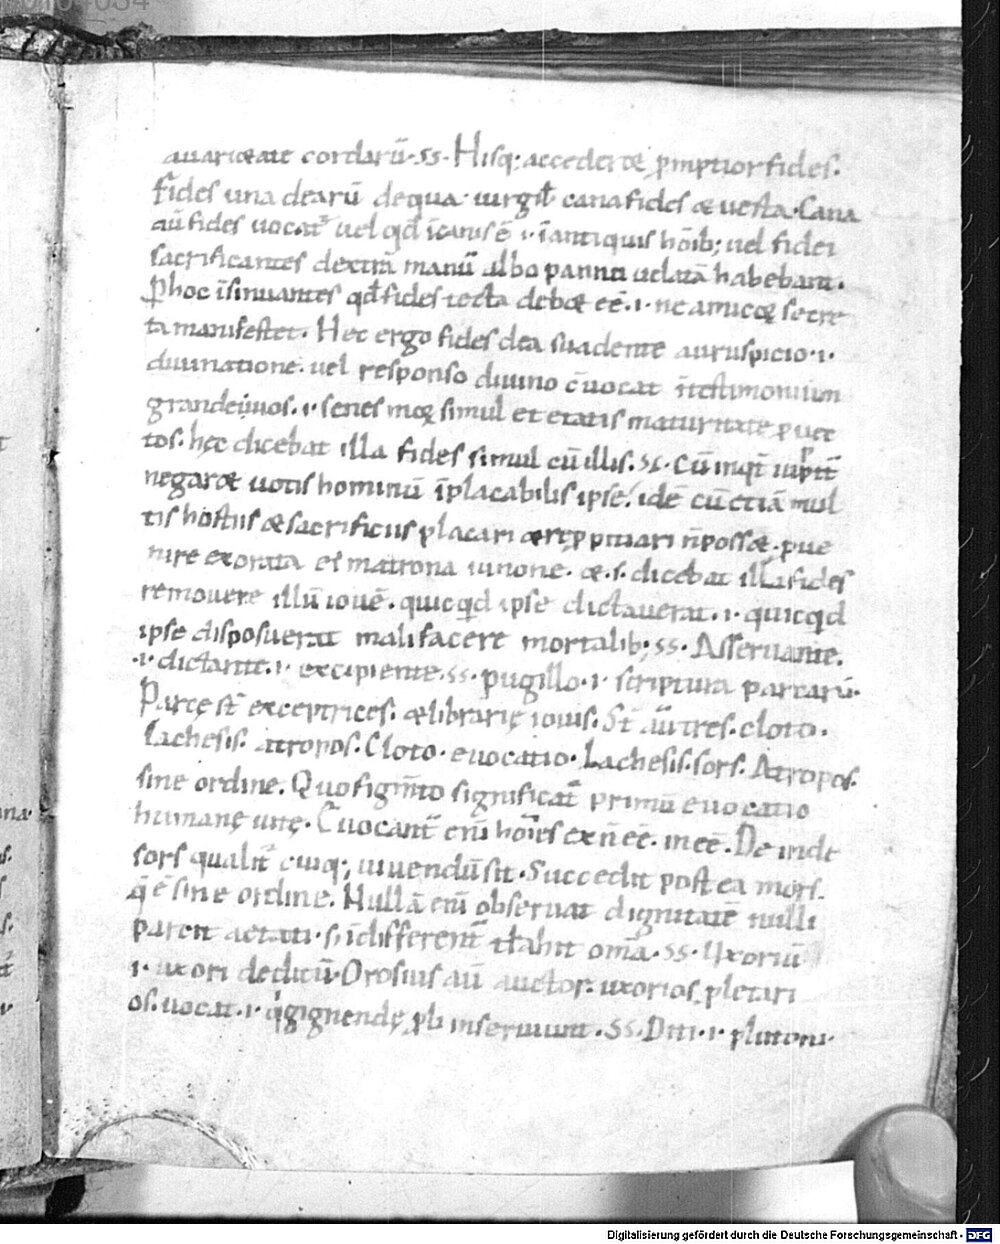 auaritate cordarū·ss· Hisq; accederet pmptior fides.
Fides una dearū dequa uirgiƚ cana fides & uesta. Cana
aū fides uocat̄ uel qđ īcanis ē ·i· īantiquis hōib; uel fidei
sacrificantes dextrā manū albo panno uelatā habebant.
P hoc īsinuantes qđ fides tecta debet eē ·i· ne amicę secre
ta manifestet. Hec ergo fides dea suadente auruspicio ·i·
diuinatione uel responso diuino cuocat ītestimonium
grandeiuos ·i· senes simul et etatis maturitate puec
tos. hęc dicebat illa fides simul cū illis. ss· Cū inqt iupiť
negaret uotis hominū īplacabilis ipse. idē cū etiā mul
tis hostiis & sacrificiis placari & ppitiari ñ posset. pue
nire exorata ei matrona iunone. &·s· dicebat illa fides
remouere illū iouē. quicqđ ipse dictauerat ·i· quicqđ
ipse disposuerat mali facere mortalib; ss· Asseruante.
·i· dictante ·i· excipiente. ss· pugillo ·i· scriptura parcarū.
Parcę st̄ exceptrices. & librarię iouis. St̄ aū tres. cloto.
Lachesis. Atropos. Cloto euocatio. Lachesis sors. Atropos.
sine ordine. Quo figm̄to significat̄ primū euocatio
humanę uitę. Euocant̄ eni hoīes ex ñ eē in eē. Deinde
sors qualit̄ cuiq; uiuendū sit. Succedit post ea mors.
q̄ ē sine ordine. Nullā eni obseruat dignitatē nulli
parcit aetati. s; īdifferent̄ t̄ahit omā. ss· Uxoriū
·i· uxori deditū. Orosius aū auctor uxorios pletari
os. uocat ·i· q gignendę pli inseruiunt. ss· Diti ·i· plutoni.
Digitalisierung gefördert durch die Deutsche Forschungsgemeinschaft - DFG